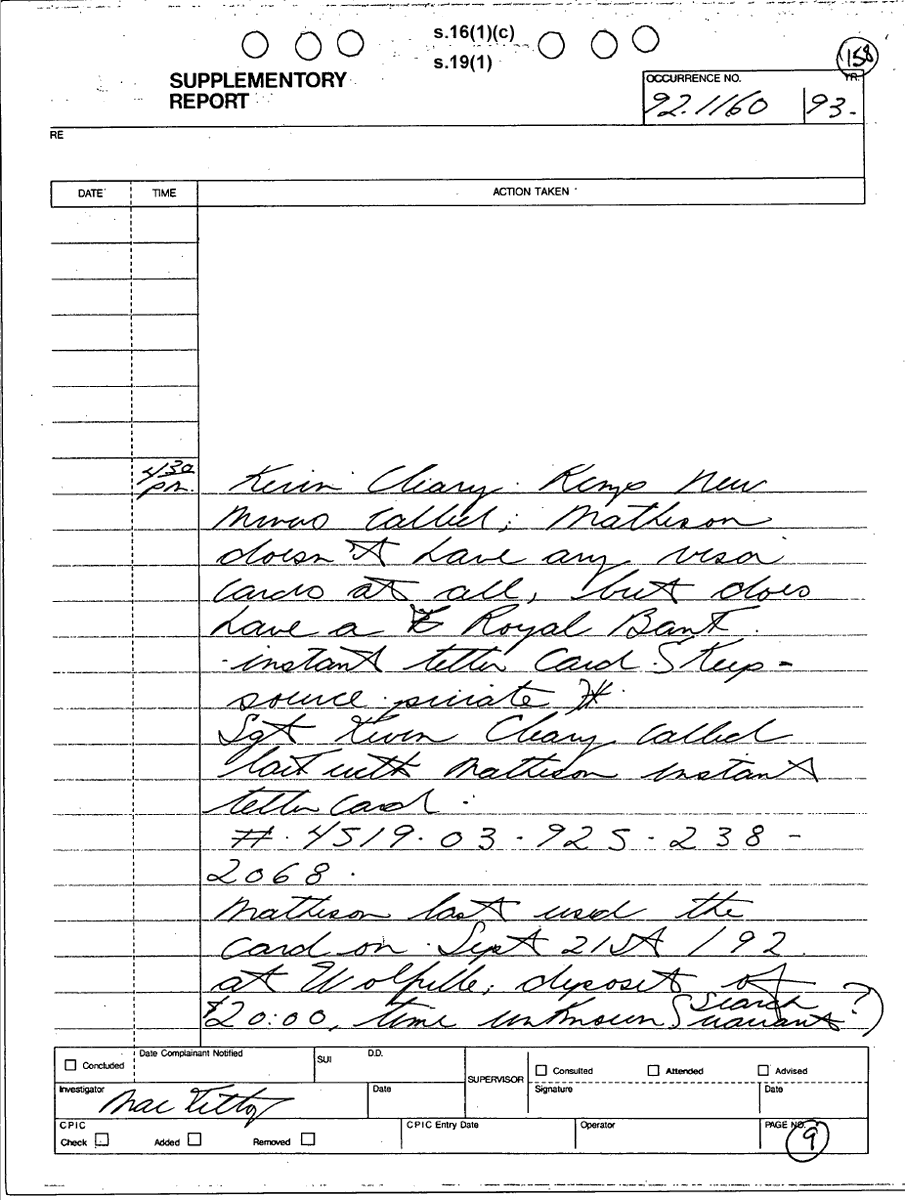 s.16(1)(c)
s.19(1)
158
SUPPLEMENTORY
REPORT
OCCURRENCE NO.
YR.
92.1160
93-
RE
DATE
TIME
ACTION TAKEN
430
p.m.
Kevin Cleary. Kemp New
Minas called; Matheson
doesn't have any visa
cards at all, but does
have a Royal Bank
instant teller Card.
source private #.
Sgt Kevin Cleary called
back with Matheson instant
teller card.
#.4519.03-925-238-
2068.
Matheson last used the
card on Sept 21st /92
at Wolfville; deposit of
$20:00, time unknown (Search
warrant?)
Concluded
Date Complainant Notified
SUI
D.D.
SUPERVISOR
Consulted
Attended
Advised
Investigator
Date
Signature
Date
CPIC
Check
Added
Removed
CPIC Entry Date
Operator
PAGE NO.
9